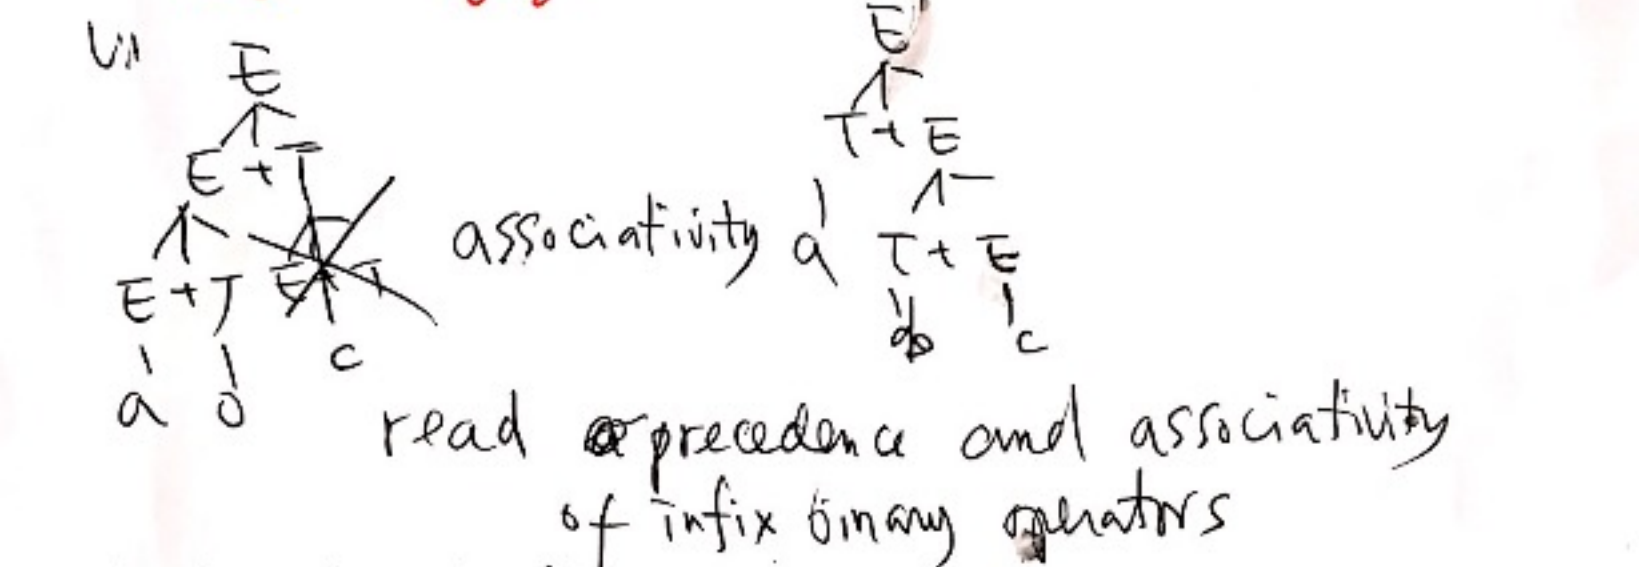 E
E + T
E + T
a
c
E
T + E
associativity a
T + E
c
read precedence and associativity
of infix binary operators